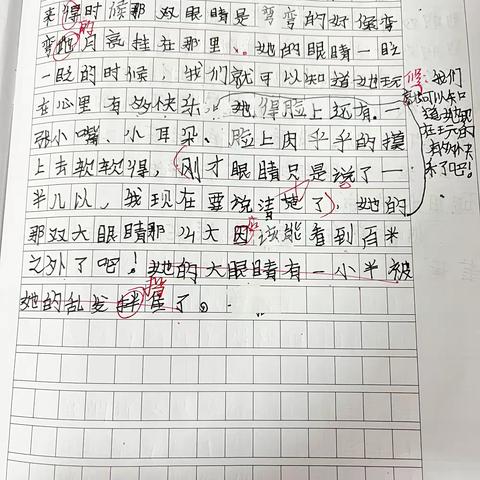 来得时候那双眼睛是弯弯的好像弯
弯的月亮挂在那里、她的眼睛一眨
一眨的时候，我们就可以知道她玩
在心里有多快乐。她得脸上还有一
张小嘴、小耳朵、脸上肉乎乎的摸
上去软软得，刚才眼睛只是说了一
半儿以，我现在要说清楚了，她的
那双大眼睛那么大因该能看到百米
之外了吧！她的大眼睛有一小半被
她的乱发挡住了。
我们
就可以知
道她现
在玩的
有多快
乐了吧！